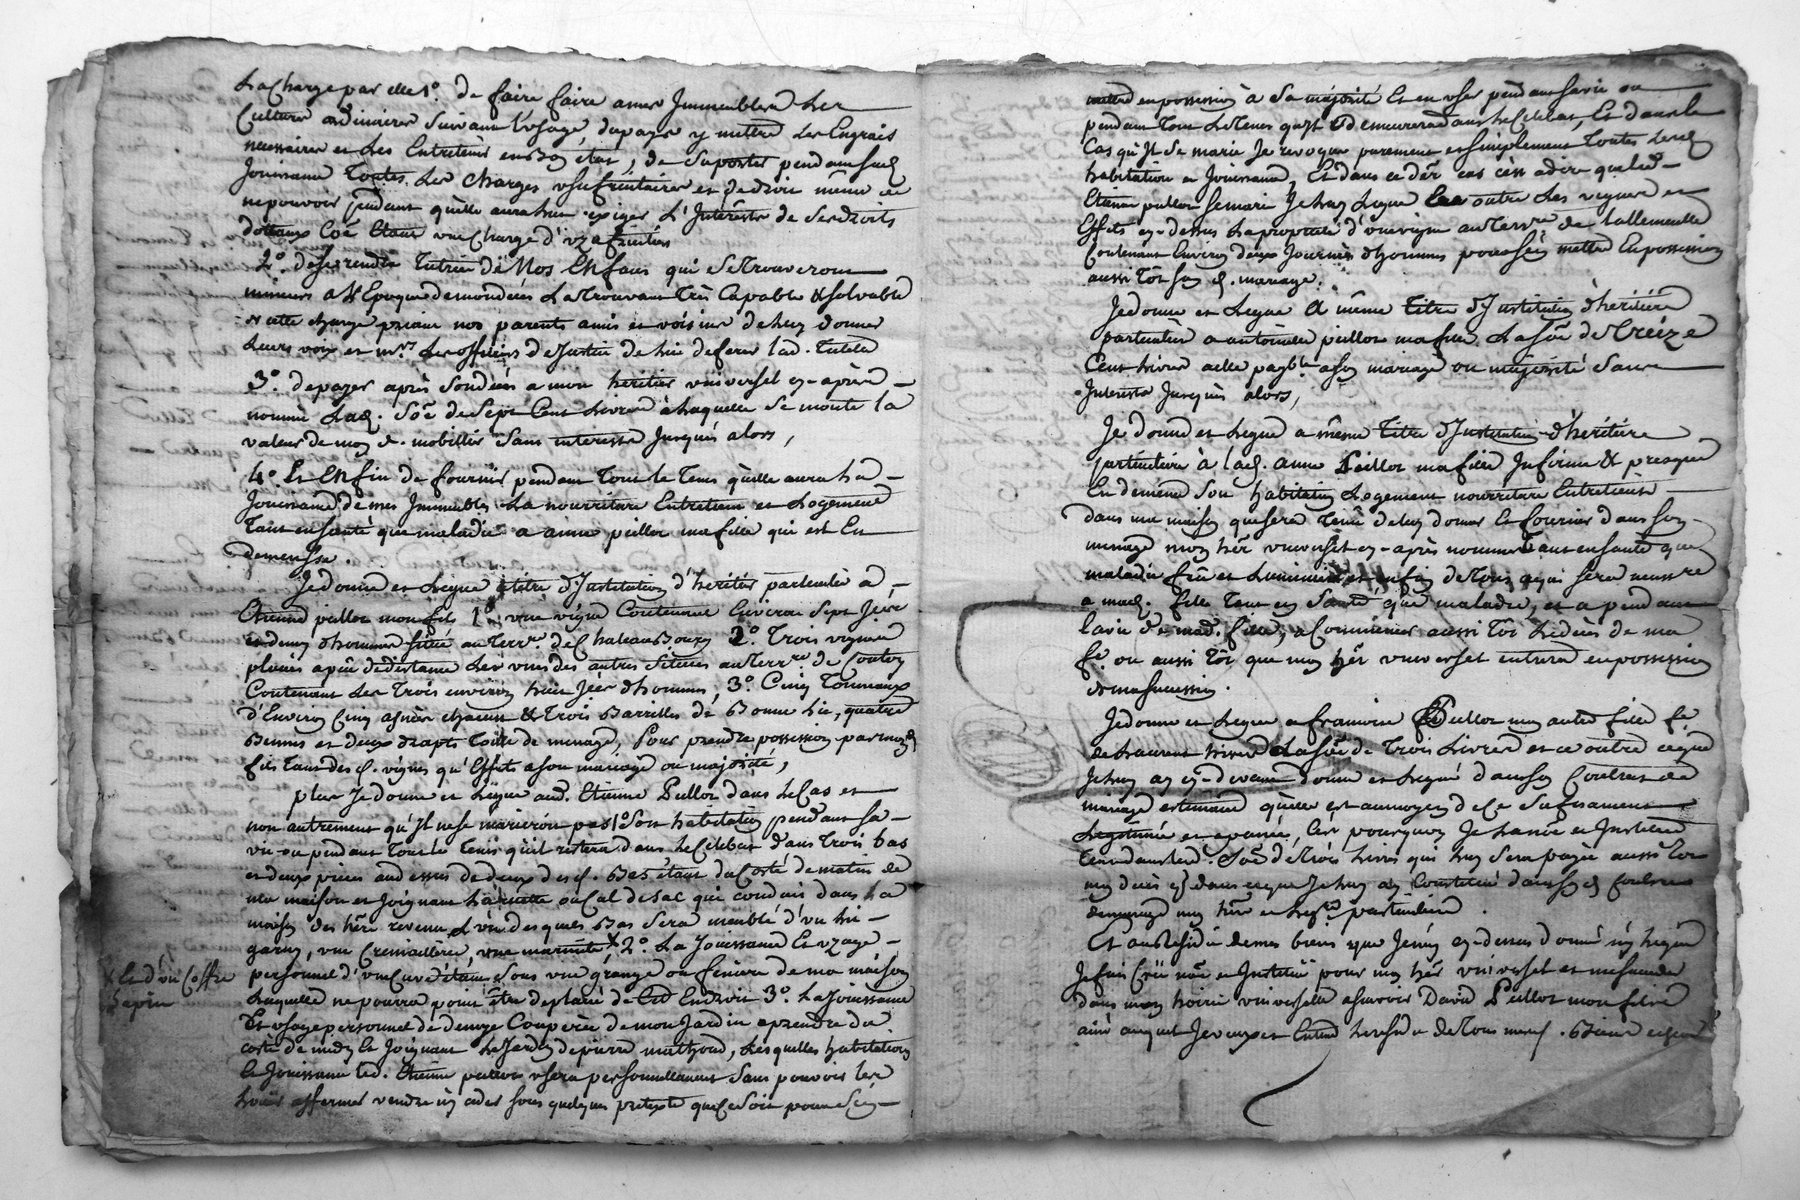 La Charge par elle 1°. de faire faire a mes Immeubles Les
Cultures ordinaires suivant l'usage du pays y mettre Les Engrais
necessaires et Les Entretenir en Bon état, de suporter pendant sad.
Jouissance Toutes Les Charges usufruitaires et de droit même de
ne pouvoir pendant qu'elle aura lieu exiger L'Interêts de ses droits
dottaux Coe Etant une Charge d'uzufruitier
2°. de se rendre Tutrice de Nos Enfans qui se trouveront
mineurs a l'Epoque de mon déces La trouvant Très Capable & solvable
a cette charge priant nos parents amis et voisins de luy donner
Leurs voix et mrs. Les officiers de Justice de lui deferer lad. Tutelle
3°. de payer après son déces a mon heritier universel cy-après
nommé Lad. Soe de Sept Cent Livres à Laquelle se monte la
valeur de mon d. mobillier sans interests jusques alors,
4°. Et Enfin de fournir pendant Tout le Tems qu'elle aura La
Jouissance de mes Immeubles La nourriture Entretien et Logement
Tant en santé que maladie a anne peillot ma fille qui est En
demense.
Je donne et Legue a titre d'Institution d'heritier particulier a
Etienne peillot mon fils 1°. une vigne Contenant Environ Sept Jées
et demy d'hommes sittué au Terrre. de Chateau Bouzon 2°. Trois vignes
places a peu de distance Les unes des autres sittuées au Terrre. de Conton
Contenant Les Trois environ huit jées d'hommes, 3°. Cinq Tonneaux
d'Environ Cinq asnées chacun & Trois Barrilles de Bonne Lie, quatre
Bennes et deux draps Toille de menage, Pour prendre possession par mond.
fils tant des d. vignes qu'Effets a son mariage ou majorité,
plus Je donne et Legue aud. Etienne Peillot dans Le Cas et
non autrement qu'Il ne se marieroit pas 1°. Son habitation pendant sa
vie ou pendant Tout le Tems qu'il restera dans Le Celibat dans Trois bas
et deux pieces au dessus de deux des d. Bas étant du Costé de matin de
ma maison et Joignant La ruette ou Cul de sac qui conduit dans La
maison des hers revenu, L'un desquels Bas sera meublé d'un Lit
garny, une Cremaillere, une marmite * 2°. La Jouissance Et uzage
* Et d'un Coffre
Sapin
personnel d'une Cuve d'étant sous une grange ou feniere de ma maison
Laquelle ne pourra point être deplacée de Cet Endroit 3°. La Jouissance
Et usage personnel de demye Couperée de mon Jardin a prendre du
costé de midy et Joignant Le Jardin de pierre mathoud, Lesquelles habitation
et Jouissance led. Etienne peillot usera personnellement sans pouvoir les
Louer affermer vendre ny ceder sous quelques pretexte que ce soit pour s'en
mettre en possession à Sa majorité Et en user pendant sa vie ou
pendant Tout Le Tems qu'Il demeurera dans Le Celibat, Et dans le
Cas qu'Il se marie Je revoque purement et simplement Toutes Lesd.
habitation et Jouissance, Et dans ce der. cas c'est adire que led.
Etienne peillot se marie Je luy Legue en outre Les vignes et
Effets cy-dessus La propriété d'une vigne au Terrre. de Lallemente
Contenant Environ deux Journées d'hommes pour s'en mettre En possession
aussi Tôt son d. mariage.
Je donne et Legue a même Titre d'Institution d'heritiere
particulière a antoinette peillot ma fille La soe de Treize
Cent livres a elle payble. a son mariage ou majorité sans
Interests jusques alors,
Je donne et Legue a même Titre d'Institution d'heritiere
particuliere à lad. anne Peillot ma fille Infirme & presque
En demense Son habitation Logement nourriture Entretient
dans ma maison que sera Tenu de luy donner Et fournir dans son
menage mon her. universel cy-après nommé Tant en santé que
maladie feu et Luminaire et enfin de Tout ce qui sera necessre
a mad. fille Tant en Santé que maladie, et a pendant
la vie de mad. fille, a Commencer aussi tôt Le déces de ma
fe. ou aussi Tôt que mon her. universel entrera en possession
de ma succession.
Je donne et Legue a francoise Peillot mon autre fille fe.
de Laurent La soe de Trois Livres et ce outre ce que
Je luy ay cy-devant donné et Legué dans son Contrat de
mariage estimant qu'elle est au moyen de Ce Sufisament
Legitimée et apanée, C'est pourquoy Je La noe et Institue
Tant dans lad. Soe de Trois Livres qui luy sera payée aussi Tôt
mon déces qu'en dans ce que Je luy ay Constitué dans sond. Contrat
de mariage mon here. et Legre. particuliere.
Et au Residu de mes biens que Je n'ay cy-dessus donné ny Legué
Je fais Crée noe et Institue pour mon her. universel et
dans mon hoirie universelle asavoir David Peillot mon fils
ainé auquel Je veux et Entend Le residu de Tous mesd. Biens